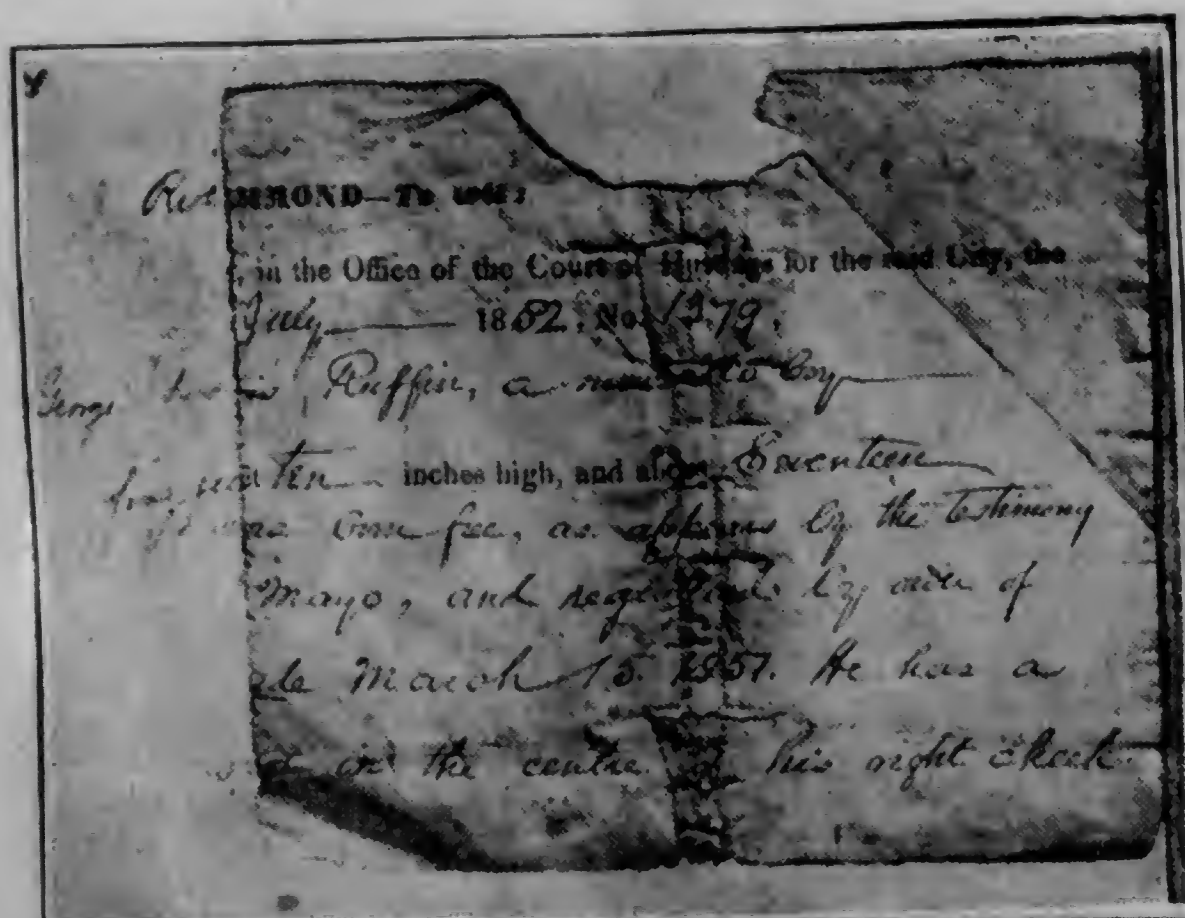 RICHMOND—To wit:
in the Office of the Court of Hustings for the said City, the
July 1852, No. 1379,
George Lewis Ruffin, a mulatto boy
feet ten inches high, and about Seventeen
born free, as appears by the testimony
Mayo, and registered by order of
made March 15. 1851. He has a
in the centre of his right cheek